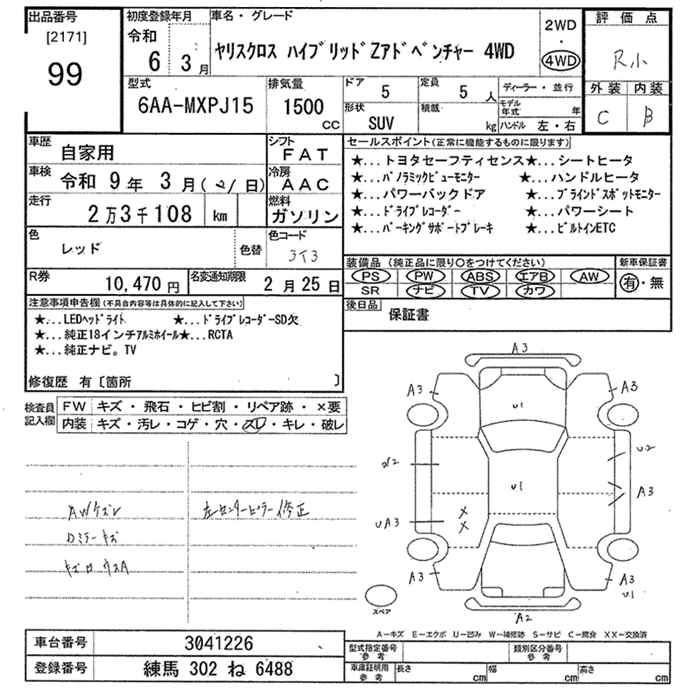 出品番号
[2171]
99
初度登録年月
令和
6 3月
車名・グレード
ヤリスクロス ハイブリッドZアドベンチャー 4WD
2WD
・
4WD
評価点
R小
外装 内装
C B
型式
6AA-MXPJ15
排気量
1500 cc
ドア
5
定員
5 人
形状
SUV
積載
kg
ディーラー・並行
モデル年式 年
ハンドル 左・右
車歴
自家用
シフト
FAT
車検
令和 9年 3月( / 日)
冷房
AAC
走行
2万3千108 km
燃料
ガソリン
色
レッド
色替
色コード
R券
10,470円
名変通知期限
2月25日
セールスポイント(正常に機能するものに限ります)
★...トヨタセーフティセンス★...シートヒータ
★...パノラミックビューモニター ★...ハンドルヒータ
★...パワーバックドア ★...ブラインドスポットモニター
★...ドライブレコーダー ★...パワーシート
★...パーキングサポートブレーキ ★...ビルトインETC
装備品(純正品に限り○をつけてください)
PS PW ABS エアB AW
SR ナビ TV カワ
新車保証書
有・無
後日品
保証書
注意事項申告欄(不具合内容等は具体的に記入して下さい)
★...LEDヘッドライト ★...ドライブレコーダーSD欠
★...純正18インチアルミホイール★...RCTA
★...純正ナビ。TV
修復歴 有〔箇所 〕
検査員記入欄
FW キズ・飛石・ヒビ割・リペア跡・×要
内装 キズ・汚レ・コゲ・穴・スレ・キレ・破レ
AWキズレ
Dミラーキズ
左センターピラー修正
A3
A3
A3
U1
U2
U1
A3
UA3
A3
A3
U1
A2
スペア
A-キズ E-エクボ U-凹み W-補修跡 S-サビ C-腐食 XX-交換済
車台番号
3041226
登録番号
練馬 302 ね 6488
型式指定番号 参考
類別区分番号 参考
車庫証明用 参考
長さ cm
幅 cm
高さ cm